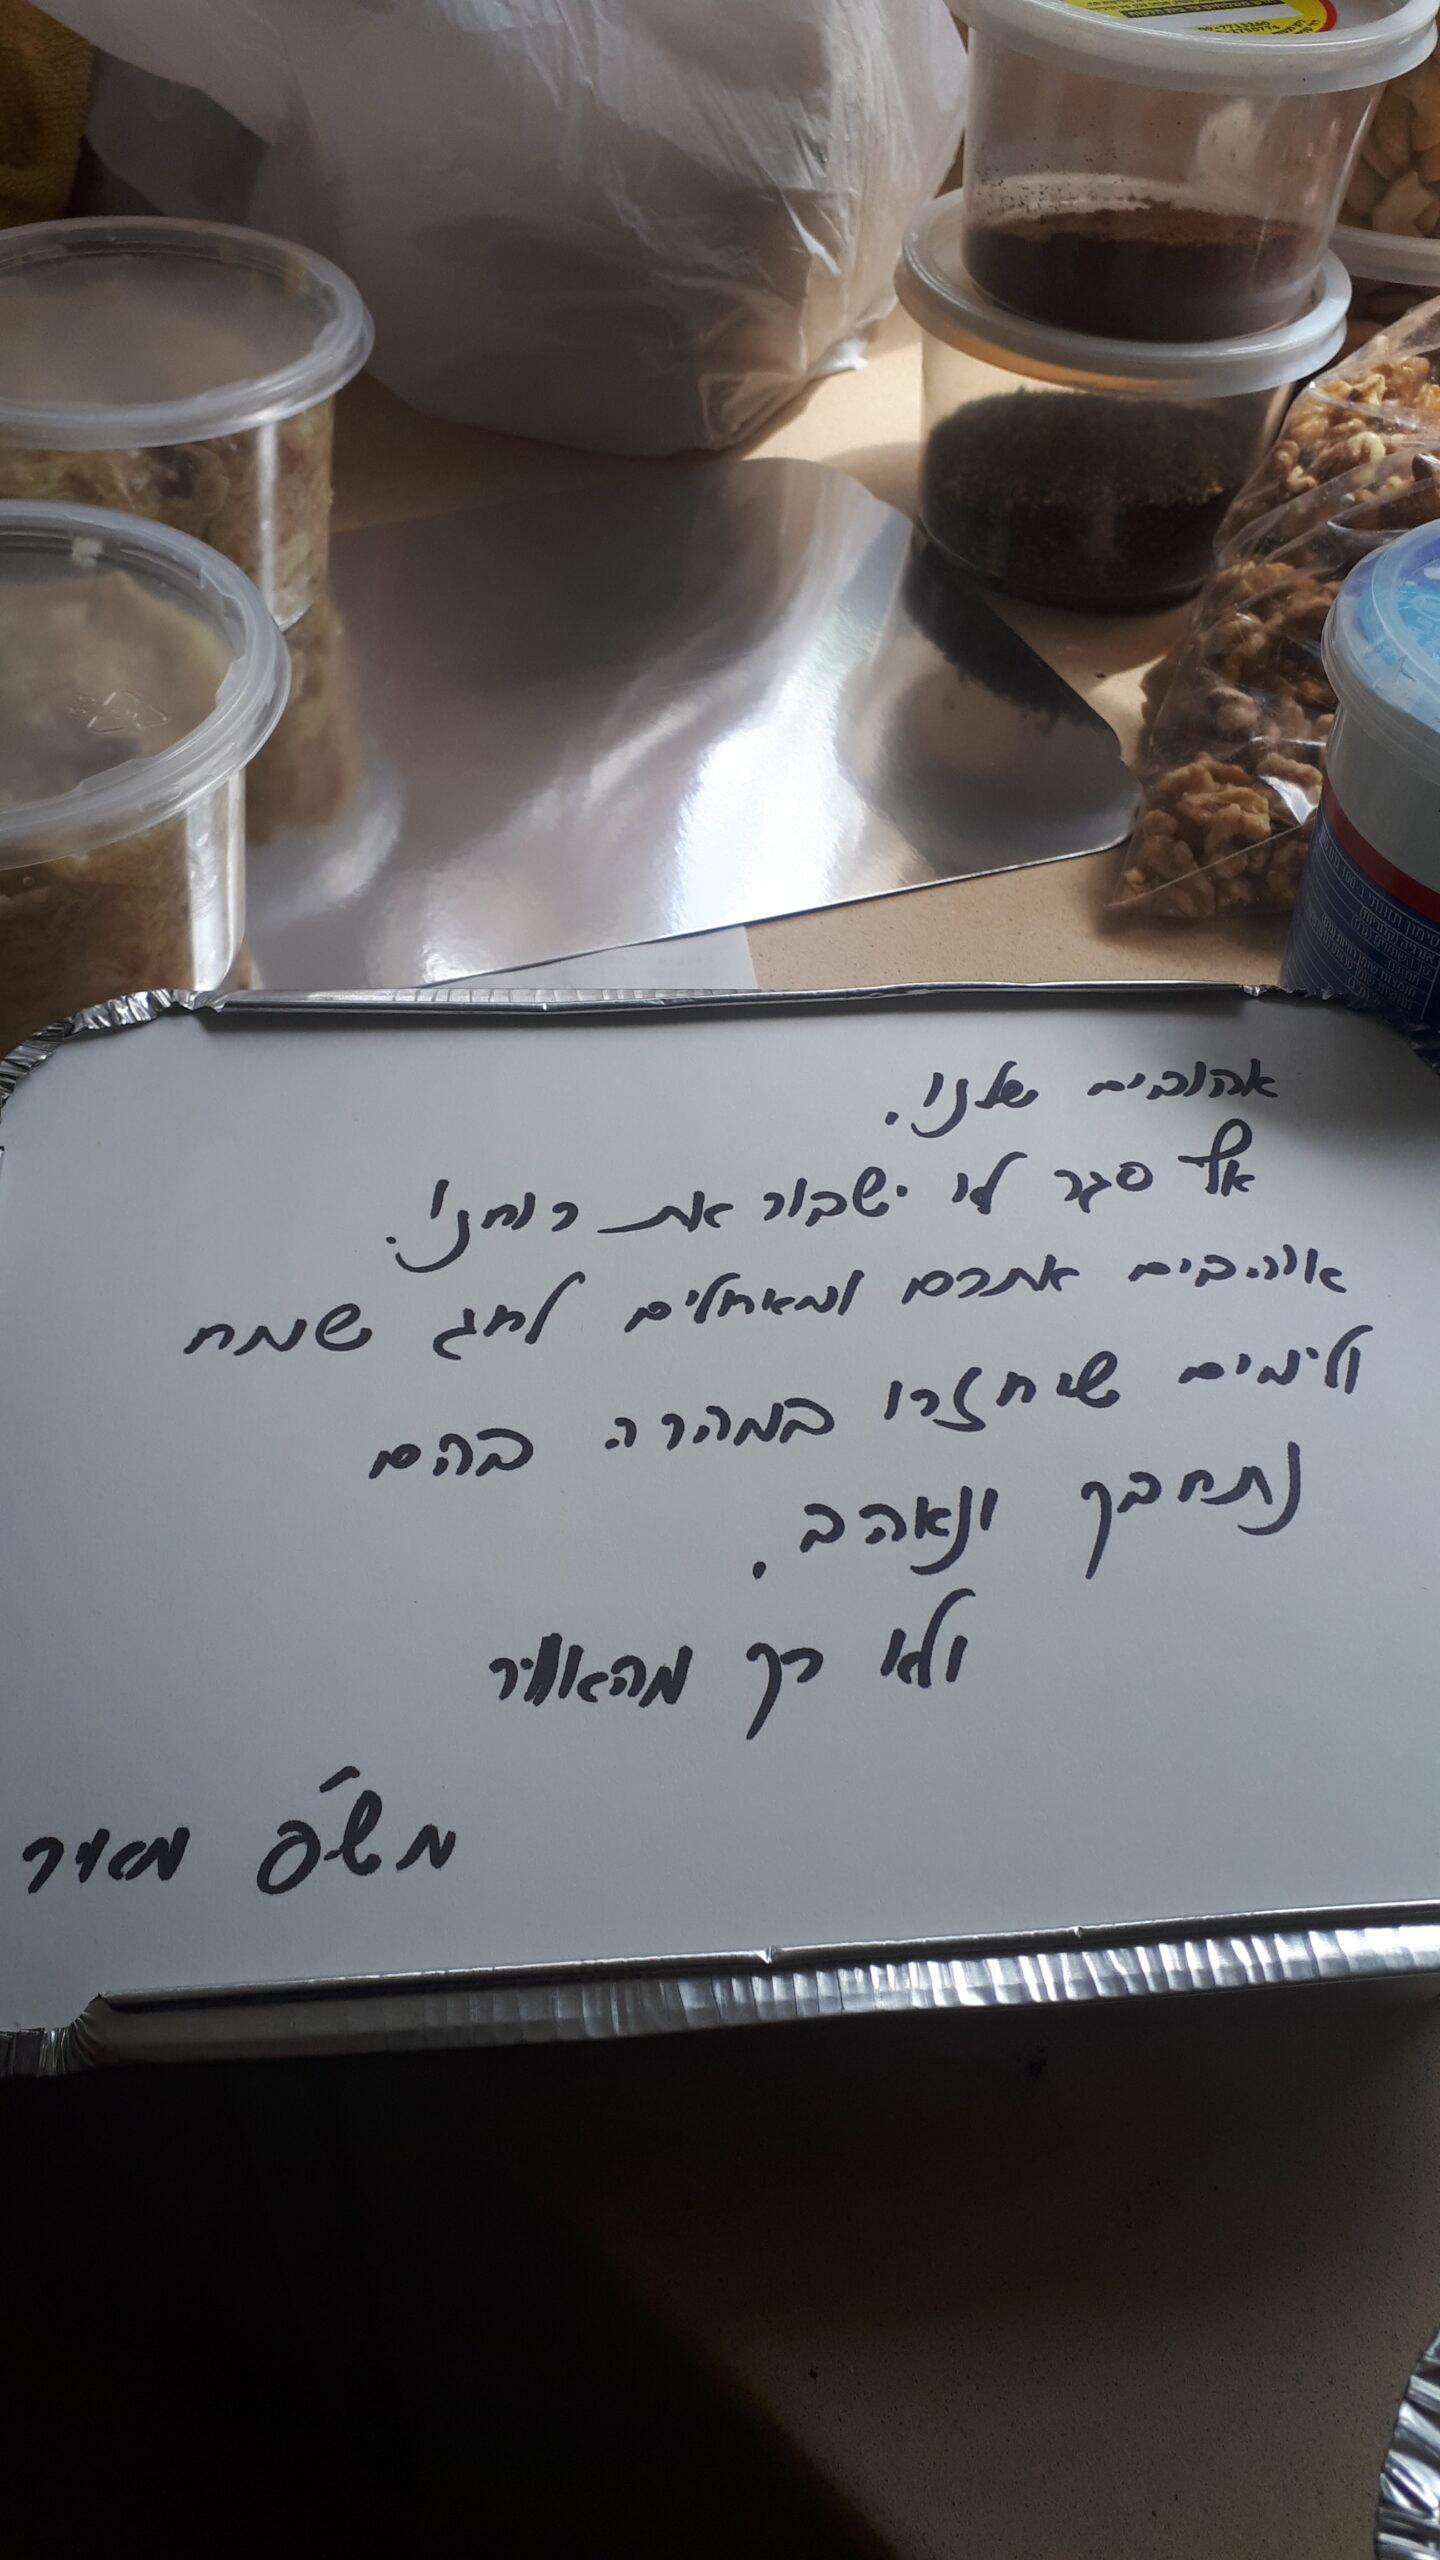 אהובים שלנו.
אף סגר לא ישבור את רוחנו.
אוהבים אתכם ומאחלים לחג שמח
ולימים שיחזרו במהרה בהם
נתחבק ונאהב.
ולא רק מהאוויר
מש'פ מאיר